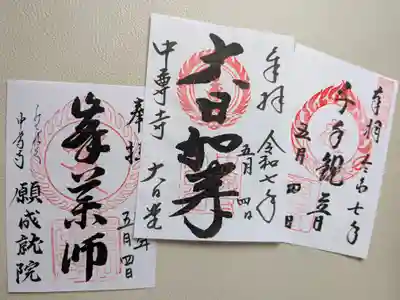 奉拝
令和七年
五月四日
千手観音
奉拝
令和七年
五月四日
大日如来
中尊寺 大日堂
奉拝
年
五月四日
峯薬師
中尊寺 願成就院